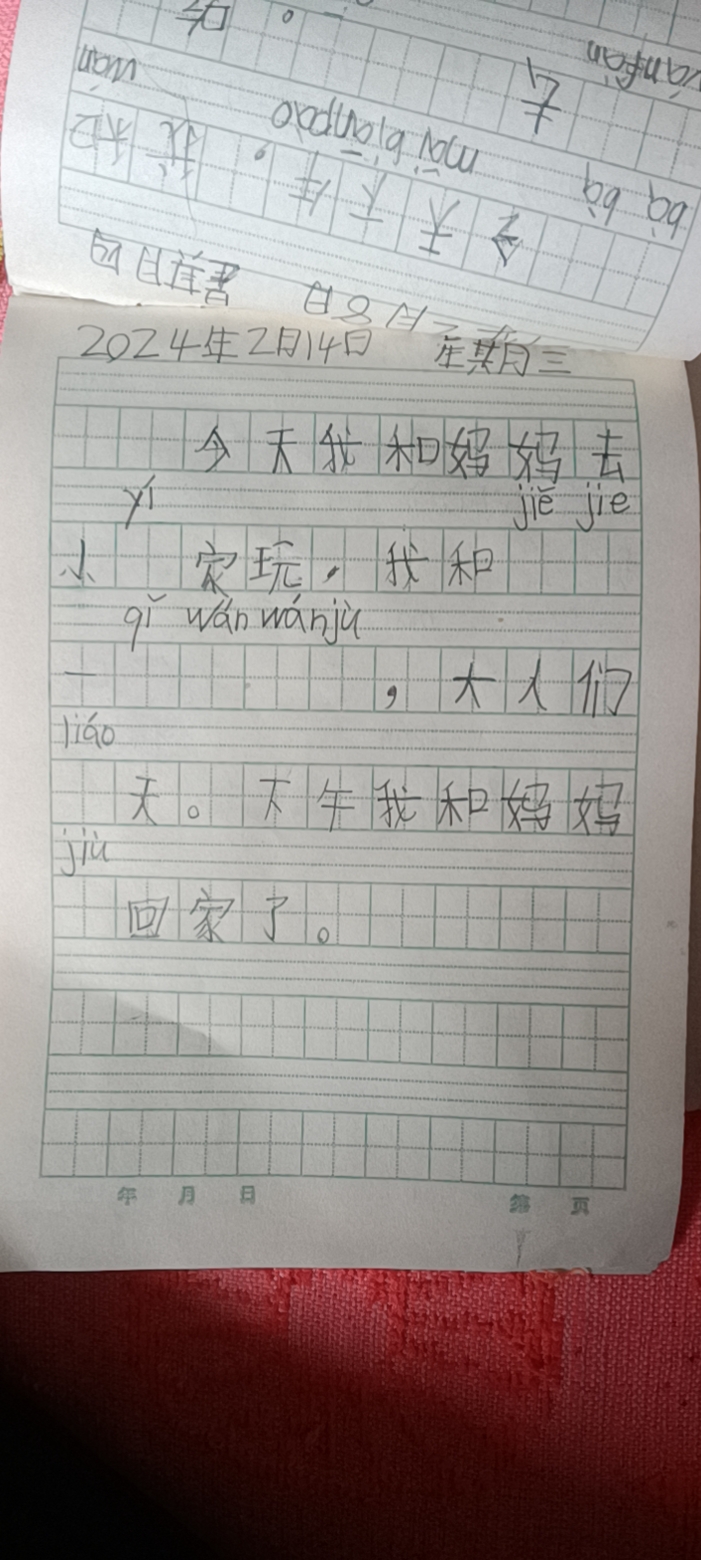 2024年2月14日 星期三
今天我和妈妈去
yí jiě jie
小 家玩，我和
qǐ wán wánjù
一 ，大人们
liáo
天。下午我和妈妈
jiù
回家了。
年 月 日 第 页
bà bà mǎi biānpào
今天天牛，我和